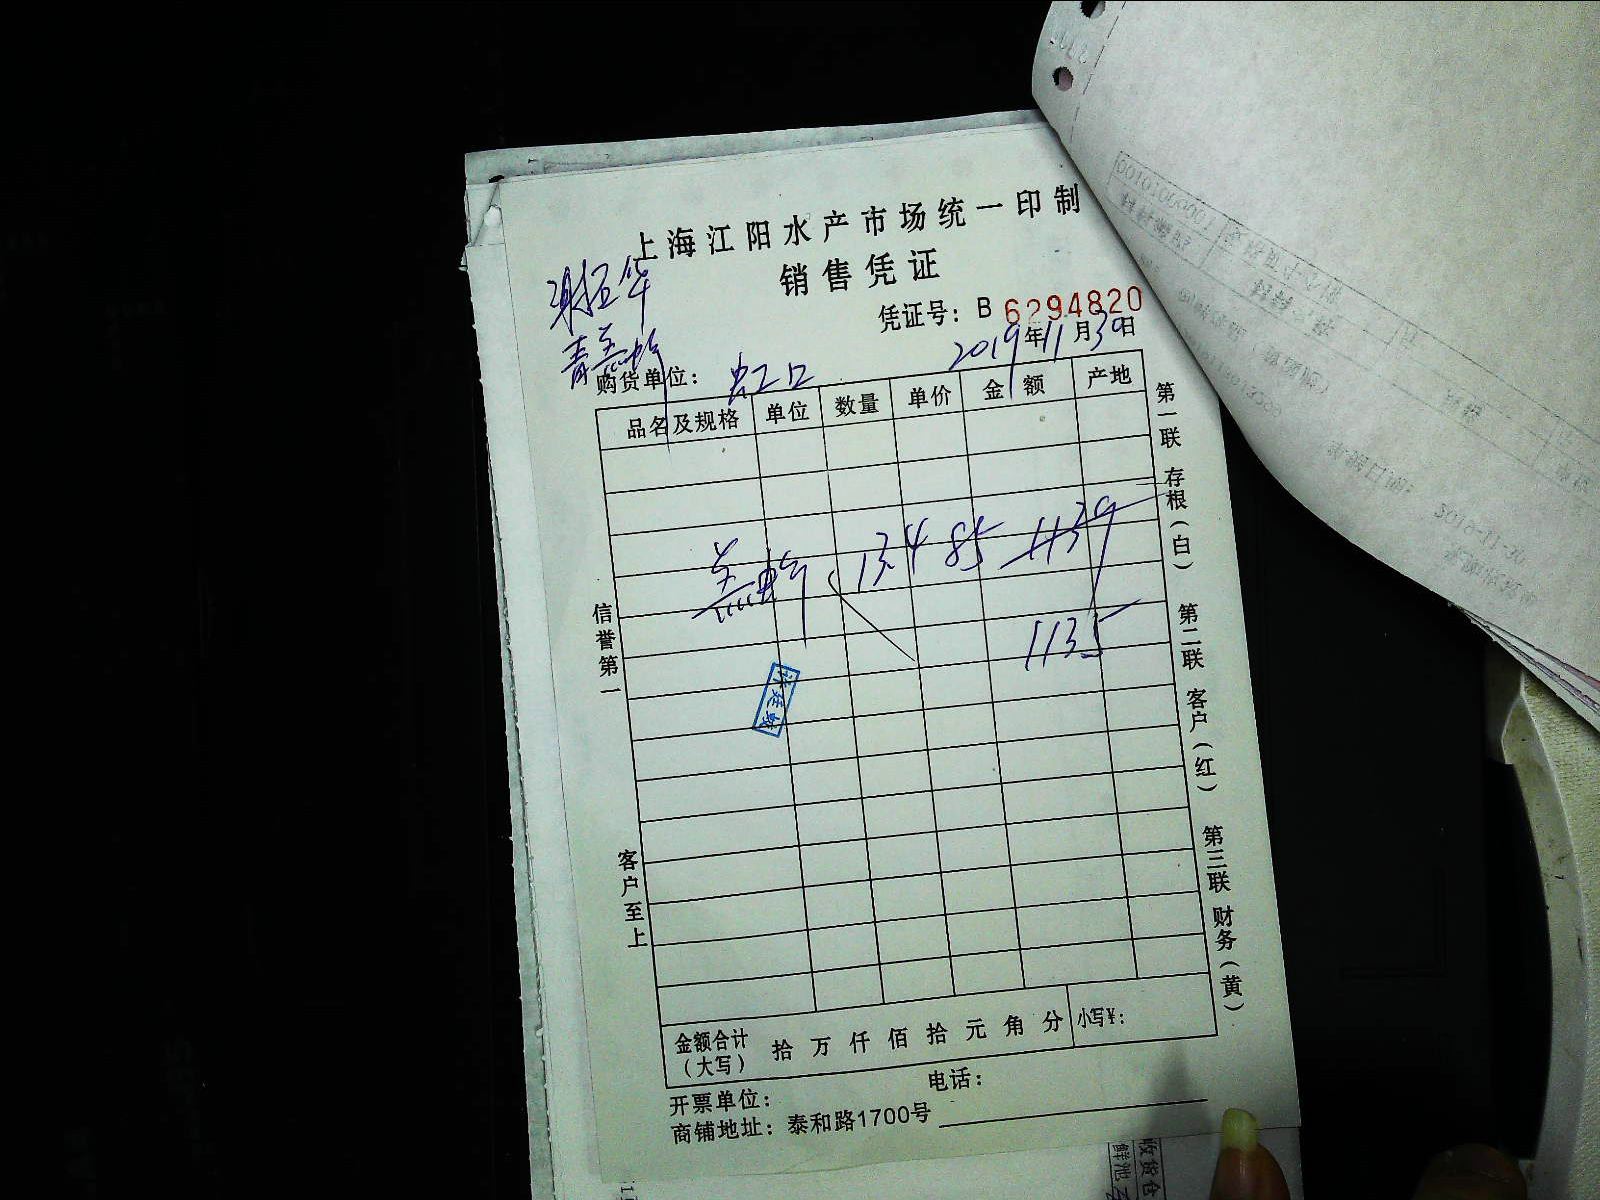 上海江阳水产市场统一印制
销售凭证
凭证号：B 6294820
2019年11月30日
购货单位：虹口
品名及规格 单位 数量 单价 金额 产地
13.4 85 1139
1135
信誉第一
客户至上
第一联 存根（白） 第二联 客户（红） 第三联 财务（黄）
金额合计（大写） 拾万仟佰拾元角分 小写¥：
开票单位： 电话：
商铺地址：泰和路1700号
收货仓
鲜池